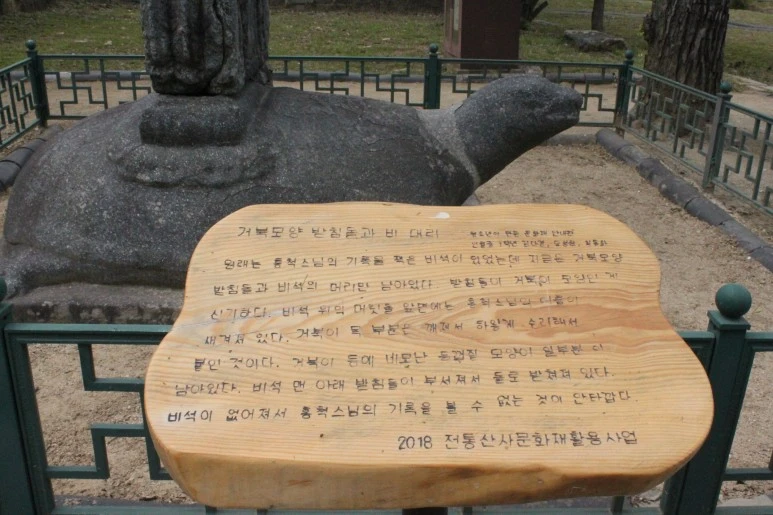 거북모양 받침돌과 비 대리
청소년이 만든 문화재 안내판
원래는 홍척스님의 기록을 적은 비석이 있었는데 지금은 거북모양
받침돌과 비석의 머리만 남아있다. 받침돌이 거북이 모양인 게
신기하다. 비석 위의 머릿돌 앞면에는 홍척스님의 이름이
새겨져 있다. 거북이 목 부분은 깨져서 하얗게 수리해서
붙인 것이다. 거북이 등에 네모난 등껍질 모양이 일부분 이
남아있다. 비석 맨 아래 받침돌이 부서져서 돌로 받쳐져 있다.
비석이 없어져서 홍척스님의 기록을 볼 수 없는 것이 안타깝다.
2018 전통산사문화재활용사업